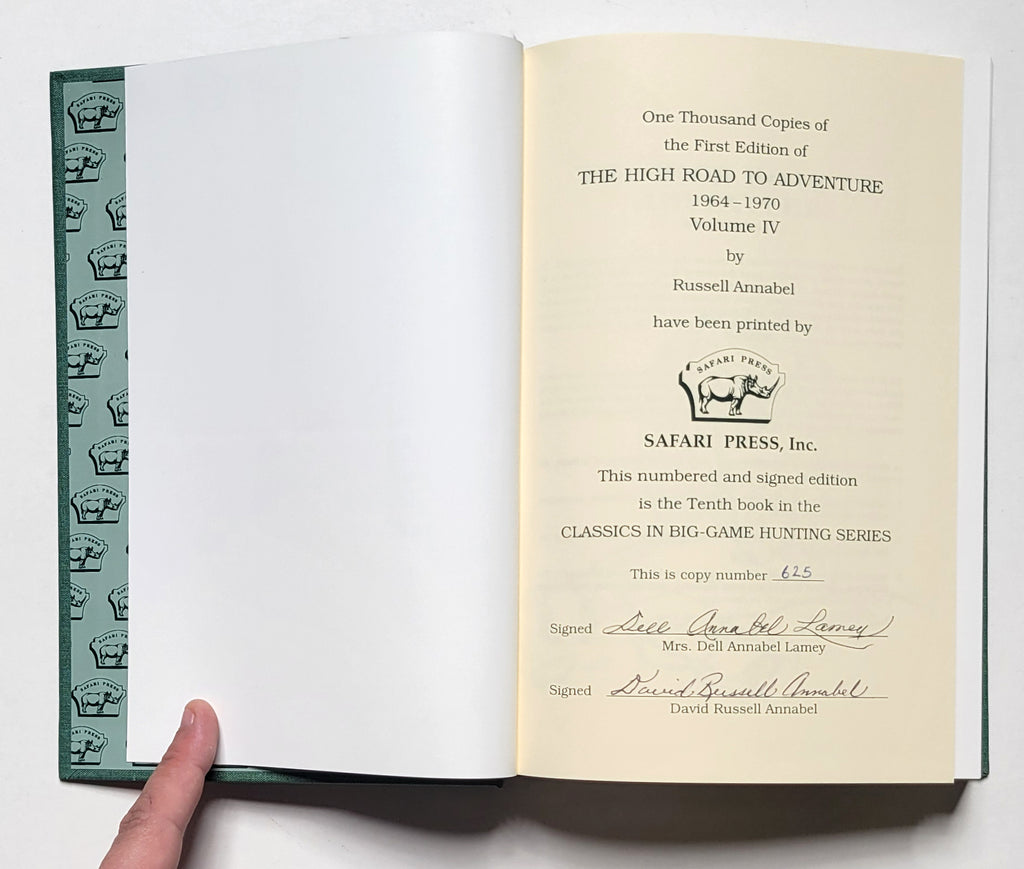 One Thousand Copies of
the First Edition of
THE HIGH ROAD TO ADVENTURE
1964–1970
Volume IV
by
Russell Annabel
have been printed by
SAFARI PRESS
SAFARI PRESS, Inc.
This numbered and signed edition
is the Tenth book in the
CLASSICS IN BIG-GAME HUNTING SERIES
This is copy number 625
Signed Dell Annabel Lamey
Mrs. Dell Annabel Lamey
Signed David Russell Annabel
David Russell Annabel